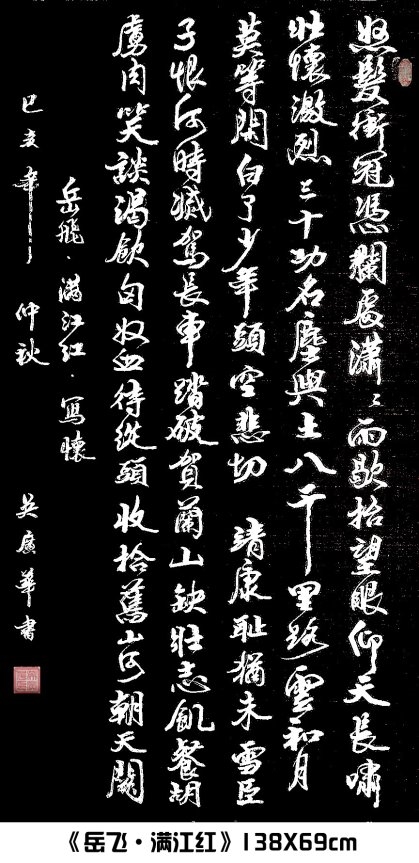 怒髮衝冠憑闌處瀟〻雨歇抬望眼仰天長嘯
壯懷激烈三十功名塵與土八千里路雲和月
莫等閑白了少年頭空悲切 靖康恥猶未雪臣
子恨何時滅駕長車踏破賀蘭山缺壯志飢餐胡
虜肉笑談渴飲匈奴血待從頭收拾舊山河朝天闕
岳飛·满江红·寫懷
己亥年 仲秋 吴广華書
《岳飞·满江红》138X69cm